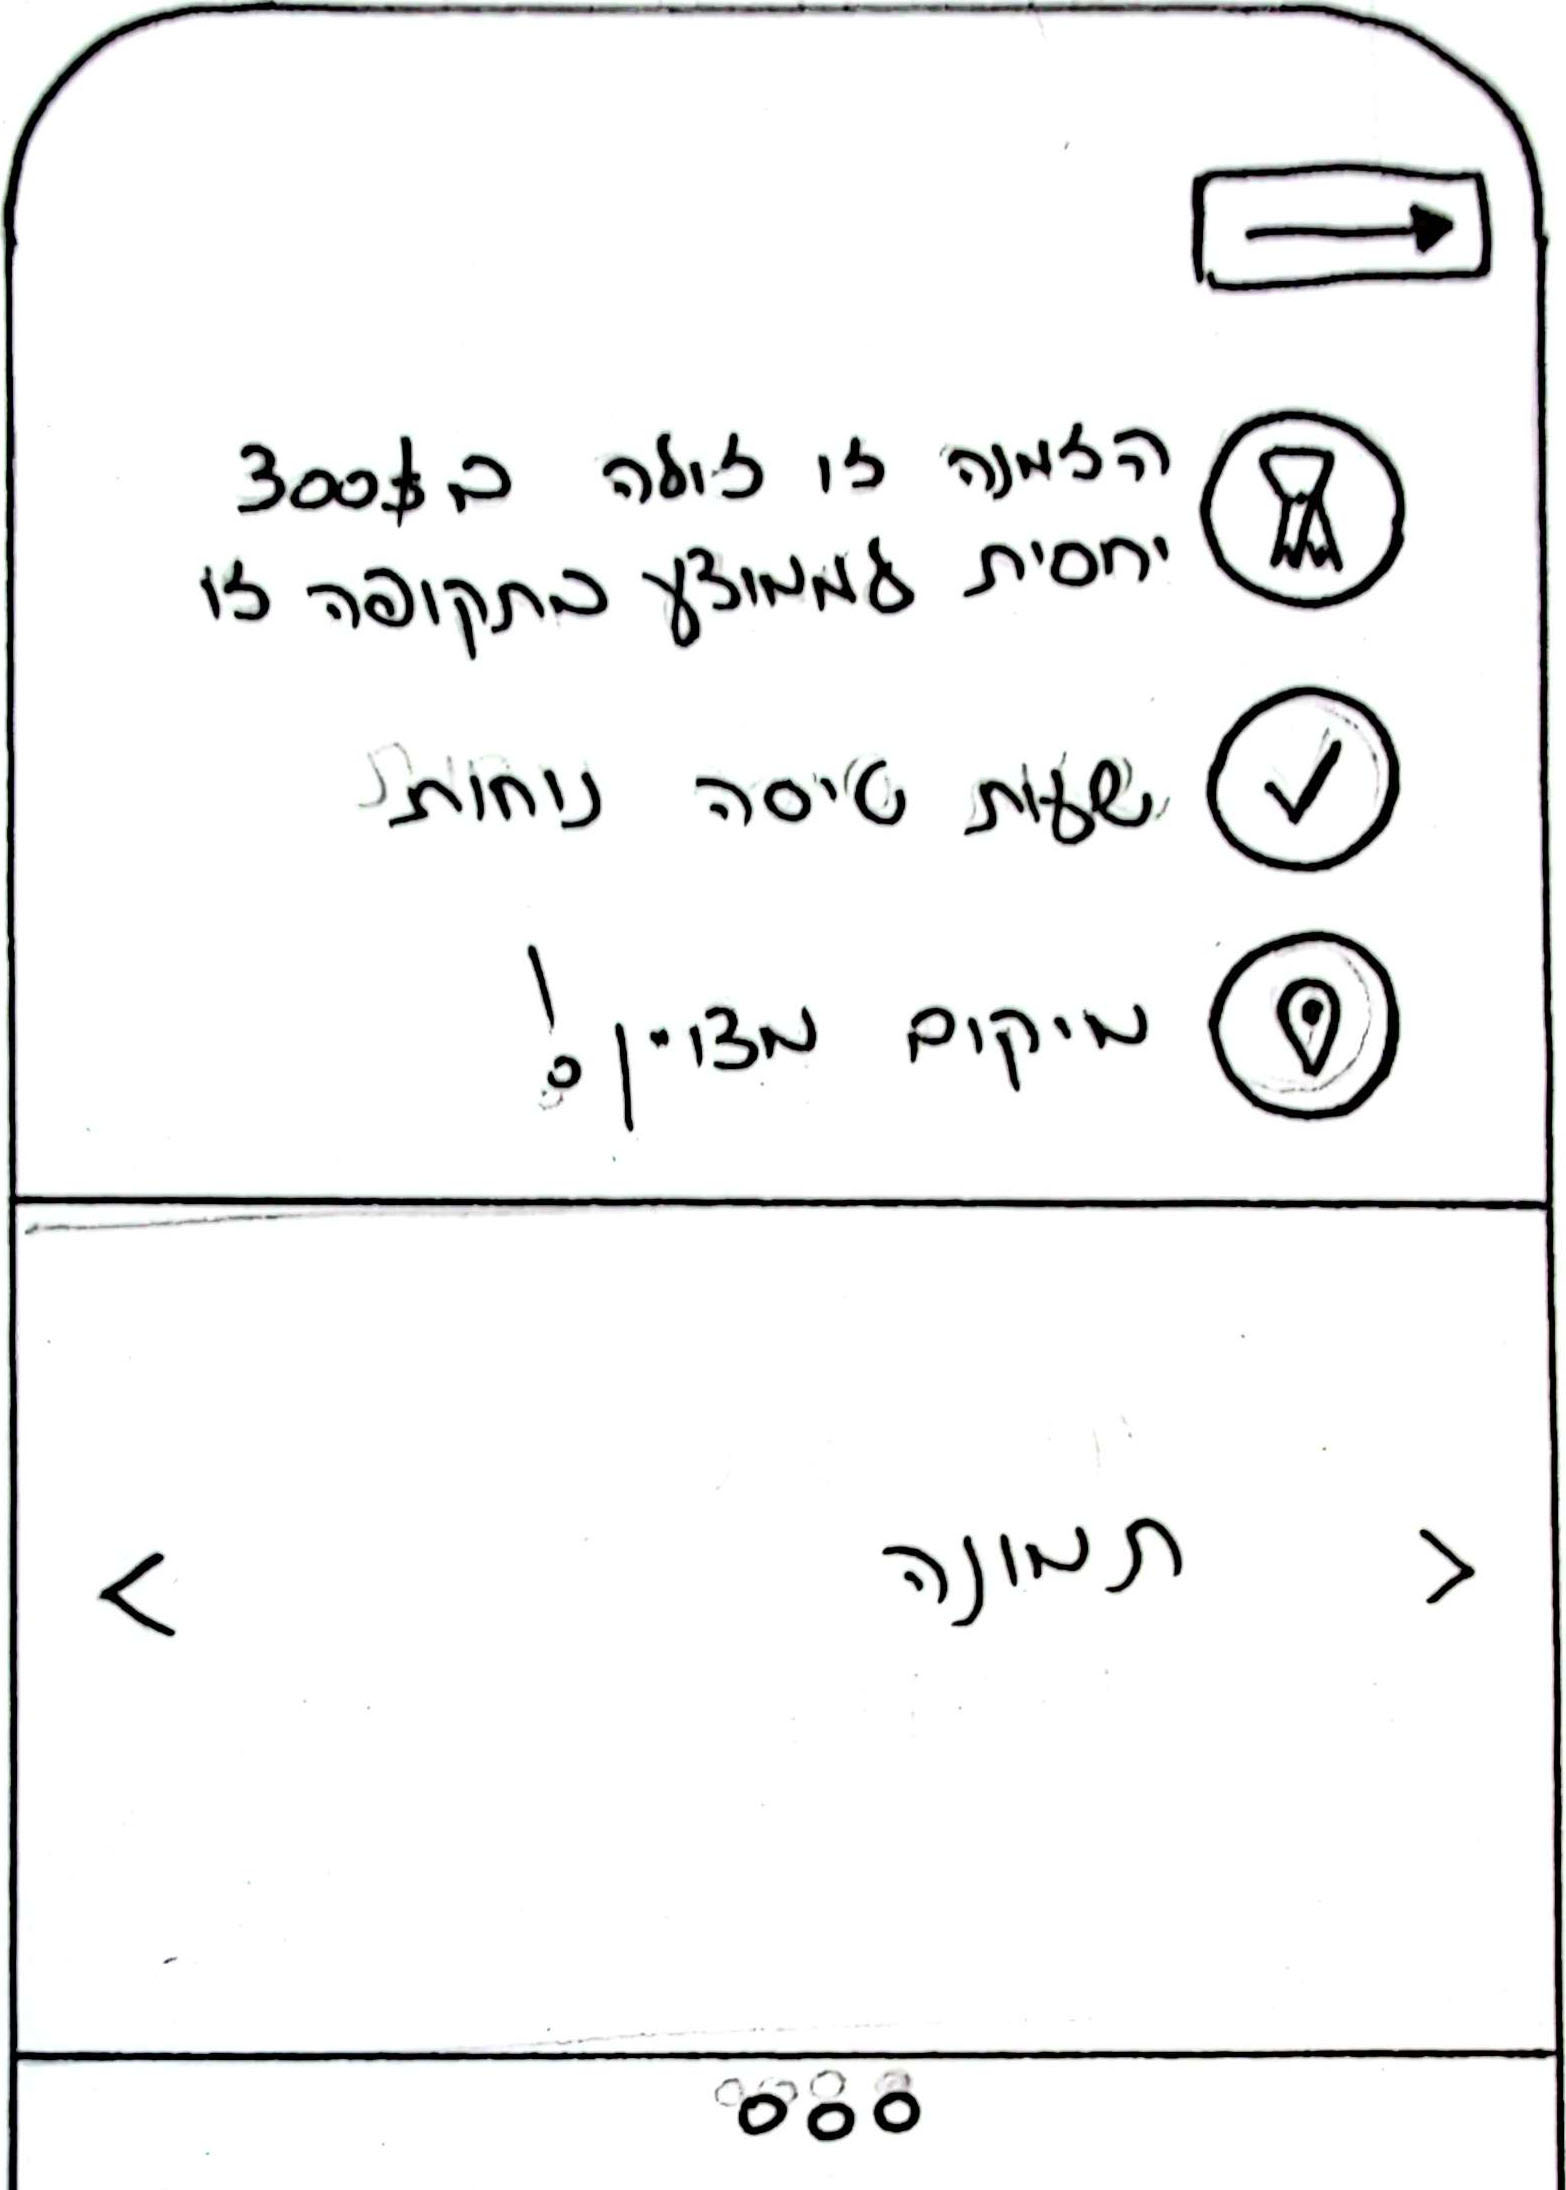 הזמנה זו זולה ב 300$
יחסית לממוצע בתקופה זו
שעות טיסה נוחות
מיקום מצויין!
תמונה